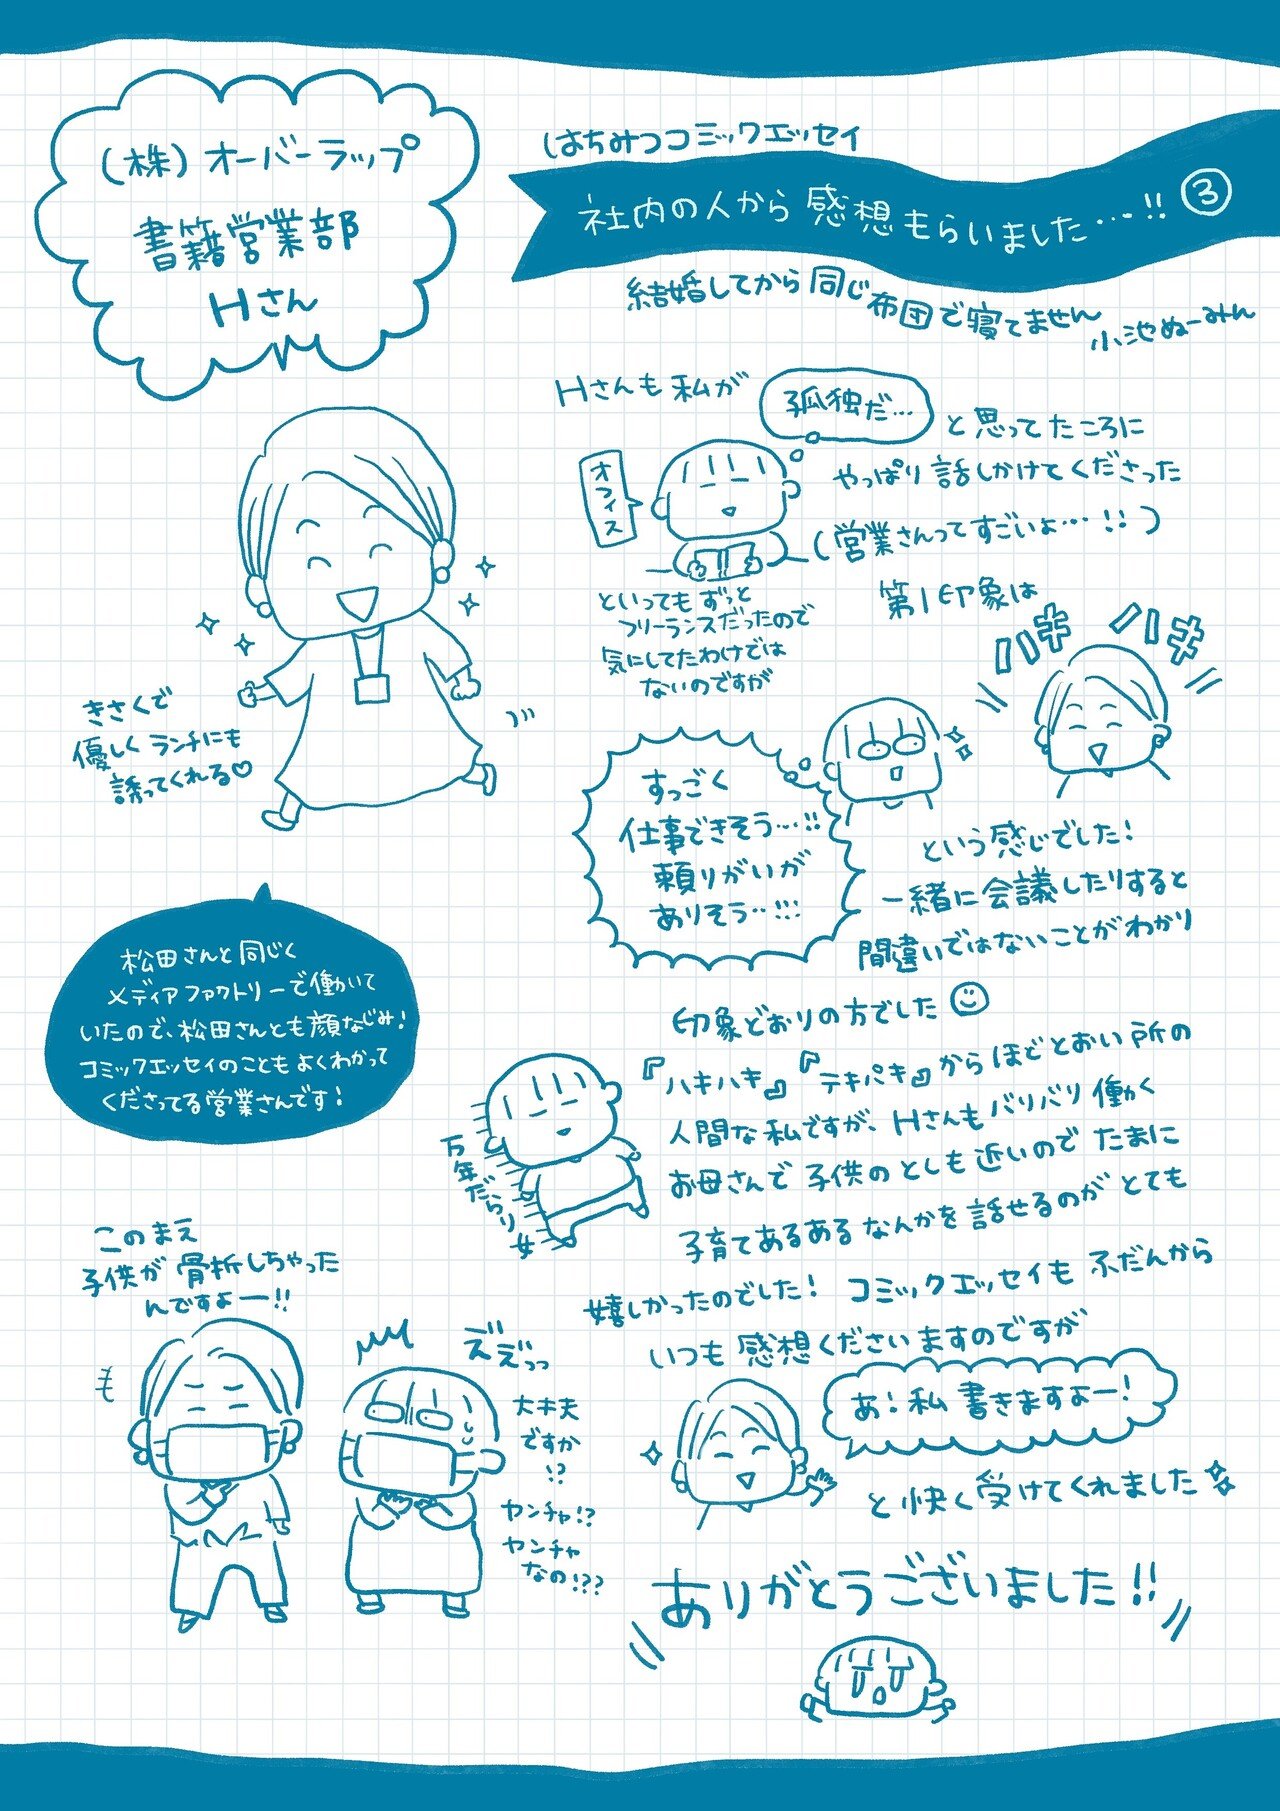 (株)オーバーラップ
書籍営業部
Hさん
はちみつコミックエッセイ
社内の人から感想もらいました…!! ③
結婚してから同じ布団で寝てません
小池ぬーみん
Hさんも私が
孤独だ…
と思ってたころに
オフィス
やっぱり話しかけてくださった
(営業さんってすごいよ…!!)
といってもずっと
フリーランスだったので
気にしてたわけでは
ないのですが
第1印象は
ハキハキ
きさくで
優しくランチにも
誘ってくれる♡
すっごく
仕事できそう…!!
頼りがいが
ありそう…!!
という感じでした!
一緒に会議したりすると
間違いではないことがわかり
印象どおりの方でした☺
松田さんと同じく
メディアファクトリーで働いて
いたので、松田さんとも顔なじみ!
コミックエッセイのこともよくわかって
くださってる営業さんです!
『ハキハキ』『テキパキ』からほどとおい所の
人間な私ですが、Hさんもバリバリ働く
お母さんで子供のとしも近いのでたまに
子育てあるあるなんかを話せるのがとても
嬉しかったのでした! コミックエッセイもふだんから
いつも感想くださいますのですが
万年だらり女
このまえ
子供が骨折しちゃった
んですよー!!
ええっっ
大丈夫
ですか
!?
ヤンチャ!?
ヤンチャ
なの!??
あ!私書きますよー!
と快く受けてくれました
ありがとうございました!!